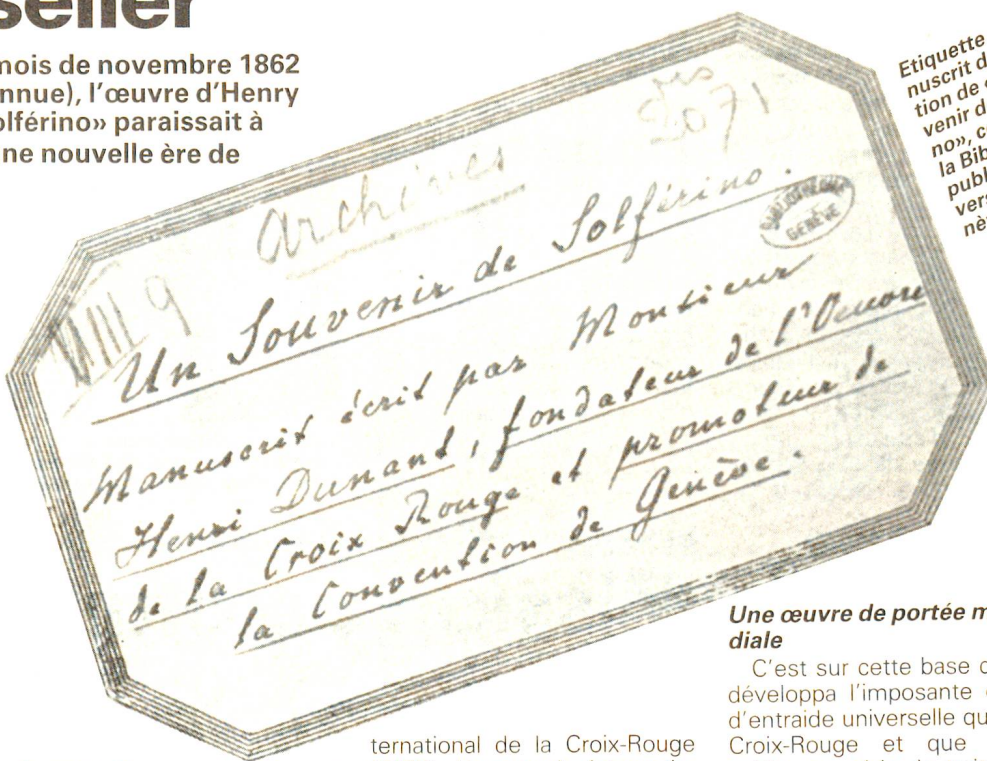 seller
mois de novembre 1862
nnue), l'œuvre d'Henry
olférino» paraissait à
ne nouvelle ère de
Etiquette
nuscrit d
tion de «
venir d
no», c
la Bib
publ
vers
nè
Archives
Ms
2071
VIII 9
BIBLIOTHEQUE
GENÈVE
Un Souvenir de Solférino.
Manuscrit écrit par Monsieur
Henri Dunant, fondateur de l'Oeuvre
de la Croix Rouge et promoteur de
la Convention de Genève.
ternational de la Croix-Rouge
Une œuvre de portée m
diale
C'est sur cette base c
développa l'imposante
d'entraide universelle qu
Croix-Rouge et que